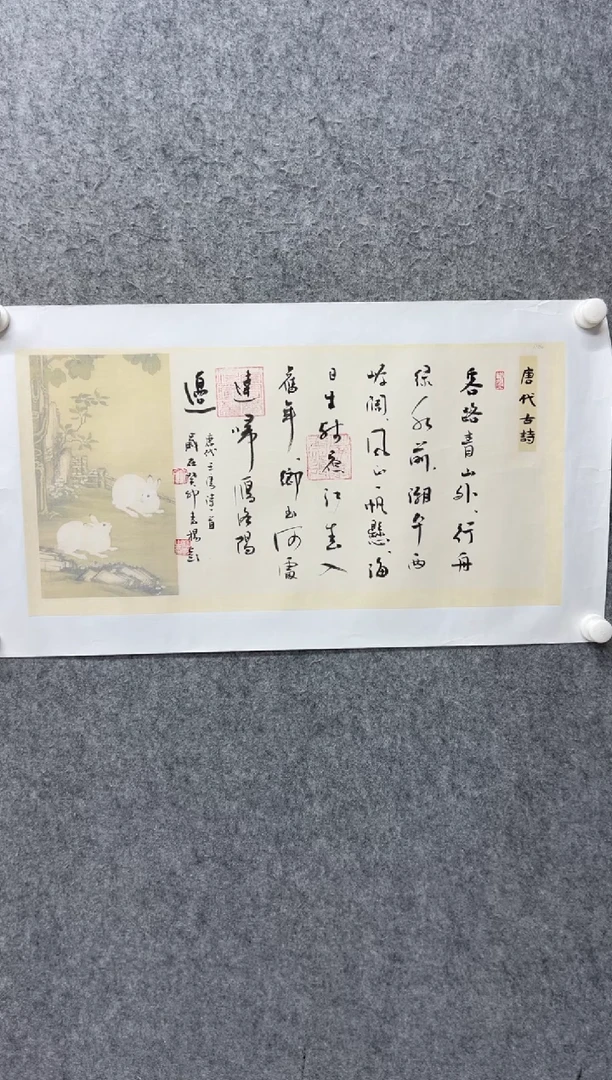 唐代古詩
客路青山外、行舟
绿水前、潮平两
岸阔、风正一帆悬、海
日生残夜江春入
舊年、鄉书何處
達歸雁洛陽
邊
唐代王湾詩一首
歲在癸卯書楊